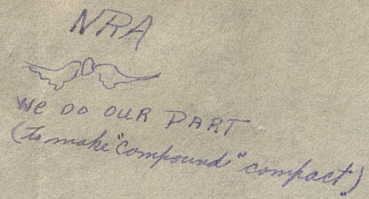 NRA
WE DO OUR PART
(to make "compounds" compact)